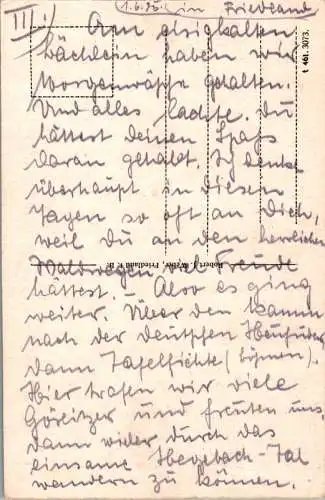 III.) (1.6.36.) in Friedland
Am eisigkalten
Bächlein haben wir
Morgenwäsche gehalten.
Und alles lachte. Du
hättest deinen Spaß
daran gehabt. Ich denke
überhaupt in diesen
Tagen so oft an Dich,
weil du an den herrlichen
Waldwegen Freude
hättest. – Also es ging
weiter. Über den Kamm
nach der deutschen
dann Tafelfichte (
Hier trafen wir viele
Görlitzer und freuten uns,
dann wider durch das
einsame Hegebach-Tal
wandern zu können.
t 461. 3073.
Robert Weber, Friedland i. B.